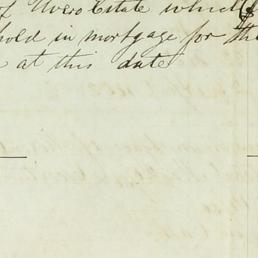 of Overo Estate which I
hold in mortgage for the
at this date